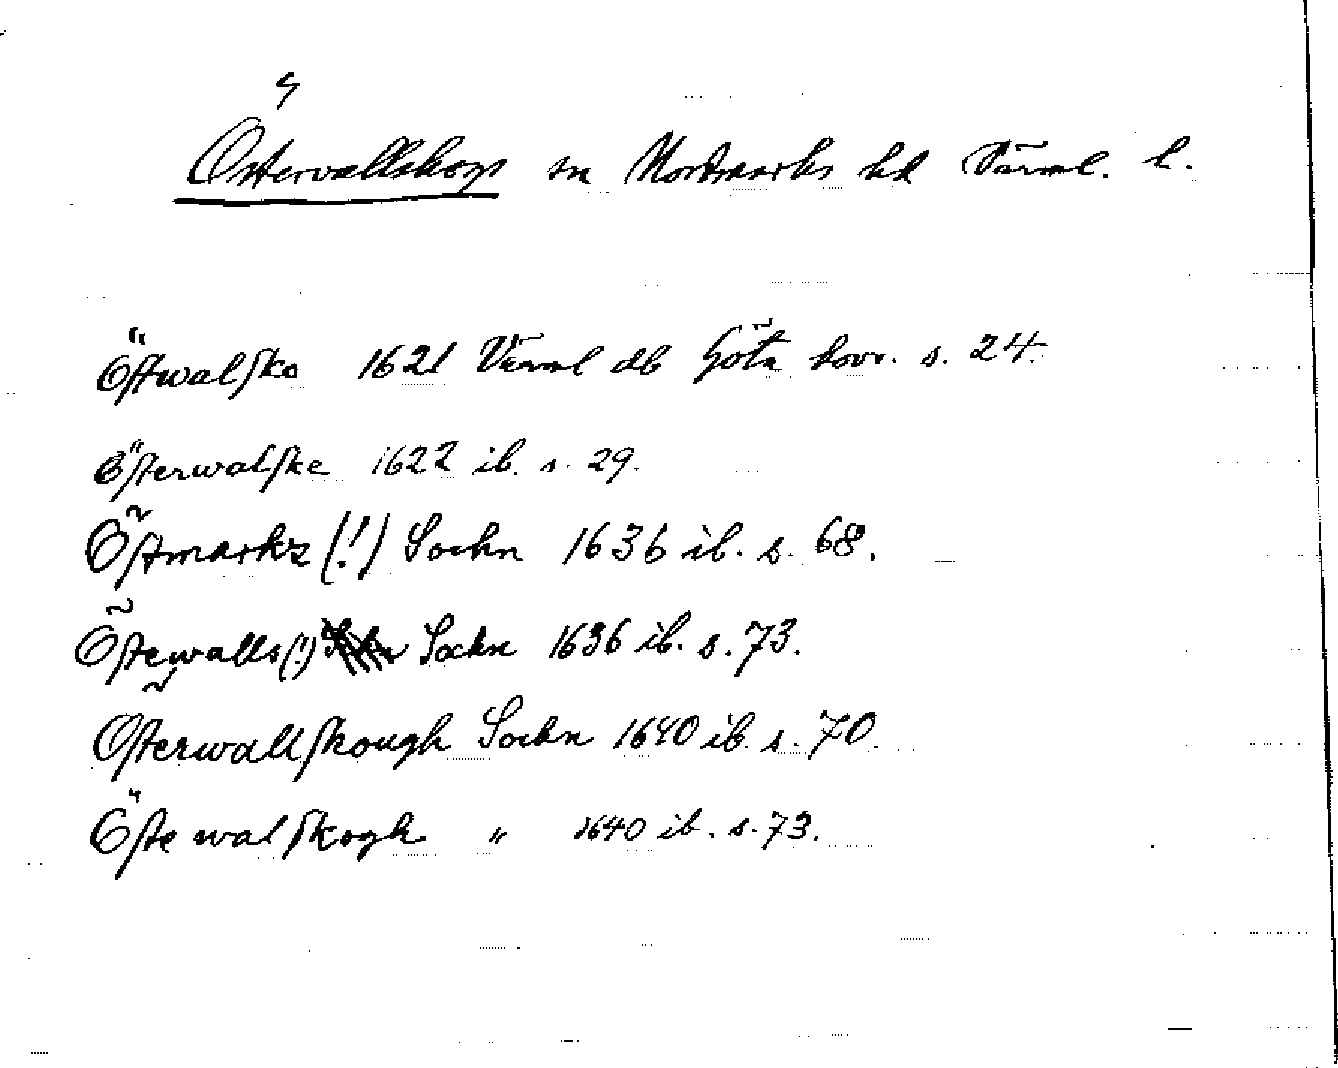 Östervallskogs sn Nordmarks hd Värml. l.
Östwalsko 1621 Värml db Göta hovr. s. 24.
Österwalske 1622 ib. s. 29.
Östmarkz (!) Sochn 1636 ib. s. 68.
Östewalls (!) Sochn 1636 ib. s. 73.
Österwallskough Sochn 1640 ib. s. 70.
Östewalskogh " 1640 ib. s. 73.